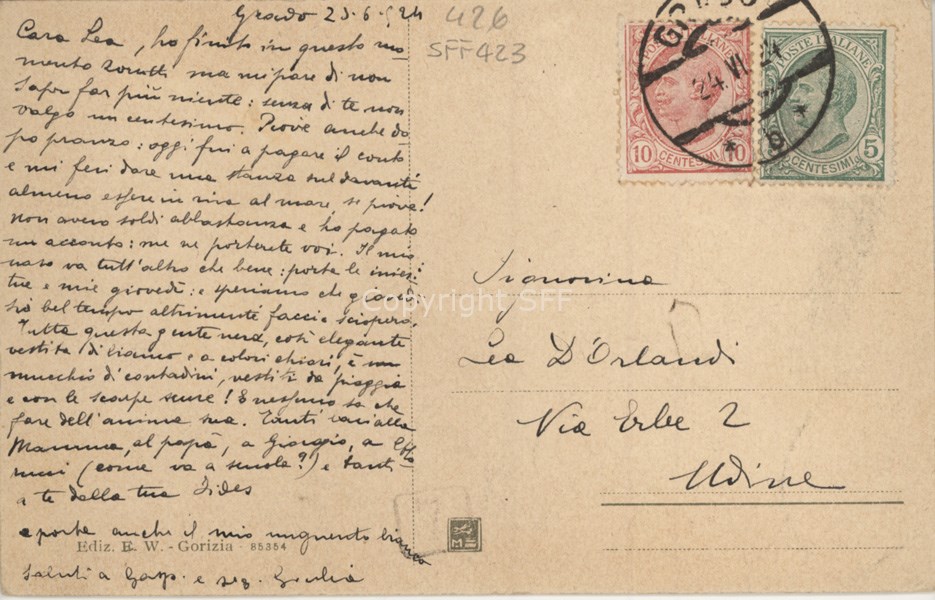 Grado 23-6-924
Cara Lea, ho finito in questo mo-
mento Zorutti ma mi pare di non
saper far più niente: senza di te non
valgo un centesimo. Piove anche do
po pranzo: oggi fui a pagare il conto
e mi feci dare una stanza sul davanti
almeno essere in riva al mare se piove!
non avevo soldi abbastanza e ho pagato
un acconto: me ne porterete voi. Il mio
naso va tutt'altro che bene: porta le
tue e mie giovedì: e speriamo che
bel tempo altrimenti faccio sciopero.
Tutta questa gente nera, così elegante
vestita di bianco e a colori chiari, è un
mucchio di contadini, vestiti da pioggia
e con le scarpe scure! E nessuno sa che
fare dell'anima sua. Tanti baci alla
Mamma, al papà, a Giorgio, a
(come va a scuola?) e tanti
a te dalla tua Fides
e porta anche il mio unguento bianco
Saluti a Gasp. e sig. Giulia
Ediz. E. W. - Gorizia - 85354
426
SFF423
POSTE ITALIANE
10 CENTESIMI 10
POSTE ITALIANE
CENTESIMI 5
24 VI 24
* 6 *
Signorina
Lea D'Orlandi
Via Erbe 2
Udine
Copyright SFF